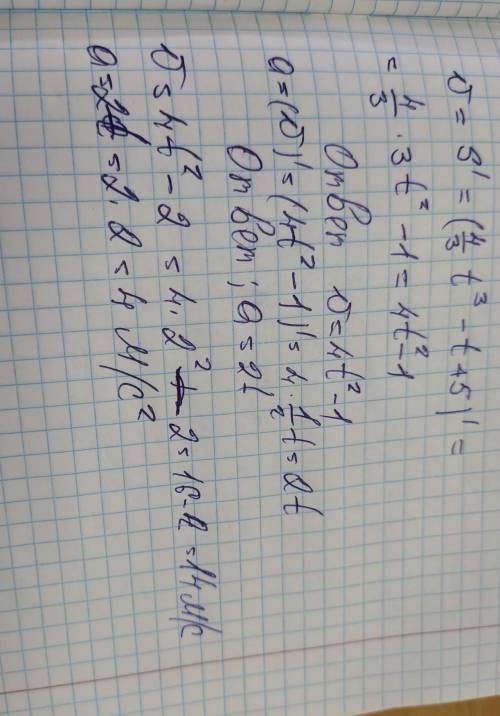 υ = S' = (4/3 t³ - t + 5)' =
= 4/3 · 3t² - 1 = 4t² - 1
Ответ υ = 4t² - 1
a = (υ)' = (4t² - 1)' = 4 · 1/2 t = 2t
Ответ; a = 2t
υ = 4t² - 2 = 4 · 2² - 2 = 16 - 2 = 14 м/с
a = 2t = 2 · 2 = 4 м/с²